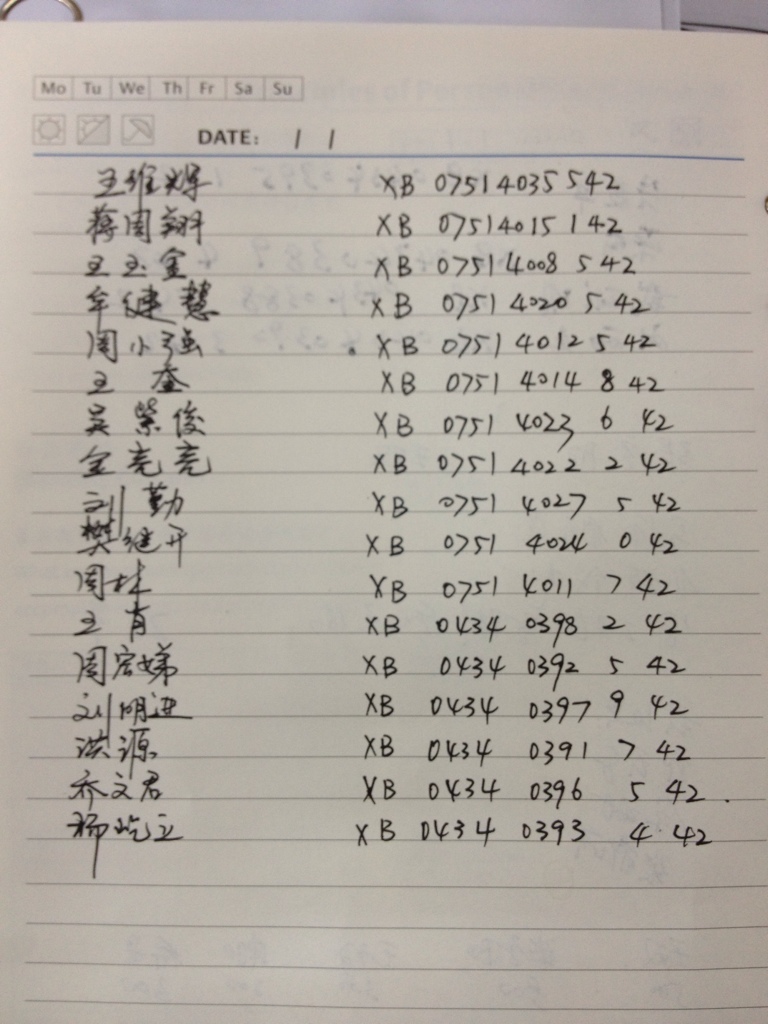 Mo Tu We Th Fr Sa Su
DATE: / /
王维辉 XB 0751 4035 5 42
蒋周翔 XB 0751 4015 1 42
王玉金 XB 0751 4008 5 42
牟继慧 XB 0751 4020 5 42
周小强 XB 0751 4012 5 42
王奎 XB 0751 4014 8 42
吴紫俊 XB 0751 4023 6 42
金亮亮 XB 0751 4022 2 42
刘勤 XB 0751 4027 5 42
樊继开 XB 0751 4024 0 42
周林 XB 0751 4011 7 42
王肖 XB 0434 0398 2 42
周宏娣 XB 0434 0392 5 42
刘明进 XB 0434 0397 9 42
洪源 XB 0434 0391 7 42
乔文君 XB 0434 0396 5 42
杨屹立 XB 0434 0393 4 42